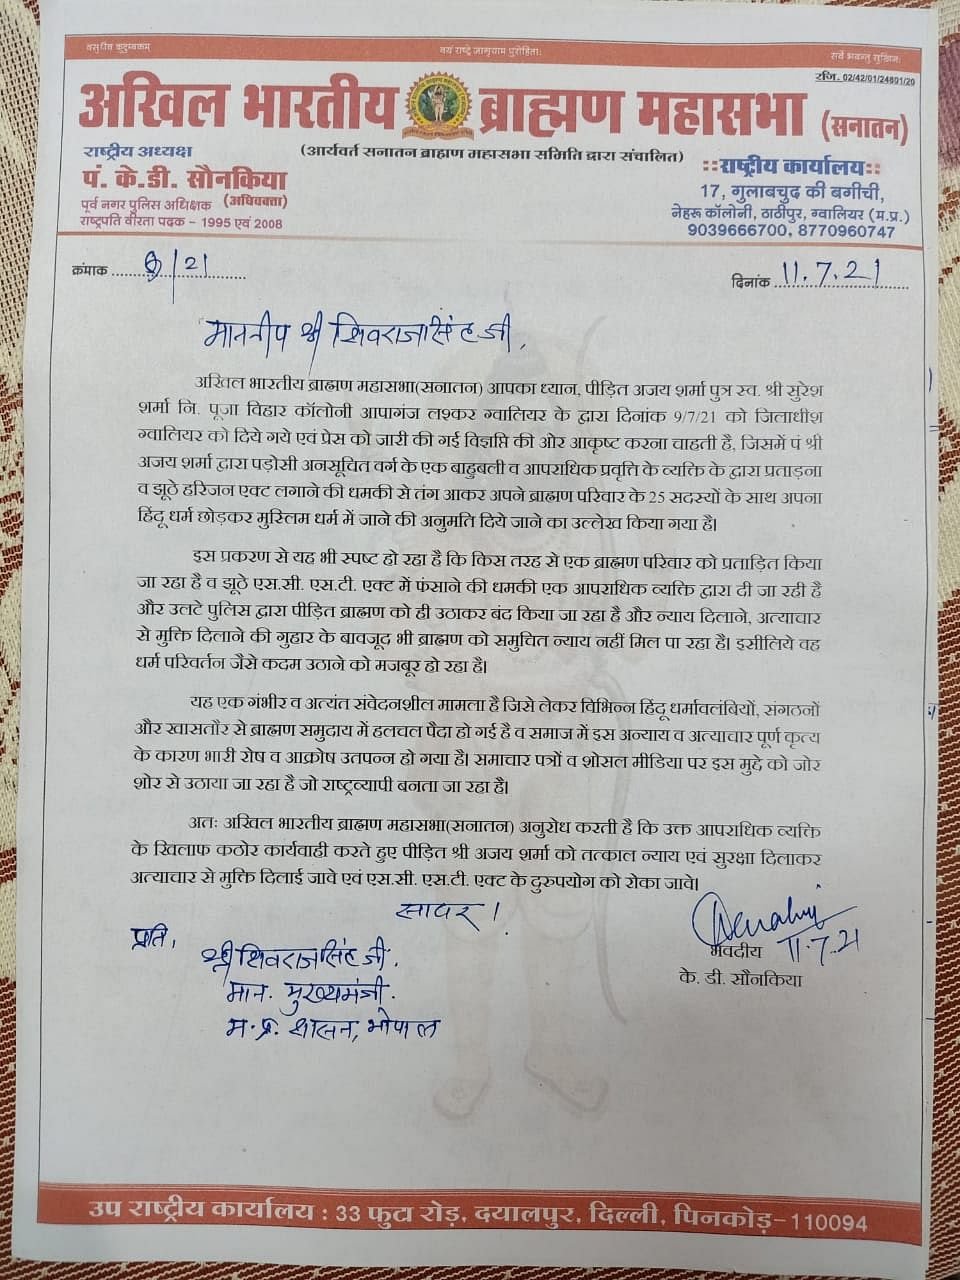 वसुधैव कुटुम्बकम्
वयं राष्ट्रे जागृयाम पुरोहिताः
सर्वे भवन्तु सुखिनः
रजि. 02/42/01/24801/20
अखिल भारतीय ब्राह्मण महासभा (सनातन)
(आर्यवर्त सनातन ब्राह्मण महासभा समिति द्वारा संचालित)
राष्ट्रीय अध्यक्ष
पं. के.डी. सौनकिया
(अधिवक्ता)
पूर्व नगर पुलिस अधिक्षक
राष्ट्रपति वीरता पदक - 1995 एवं 2008
::राष्ट्रीय कार्यालय::
17, गुलाबचुद की बगीची,
नेहरू कॉलोनी, ठाठीपुर, ग्वालियर (म.प्र.)
9039666700, 8770960747
क्रंमाक .......... /21
दिनांक 11.7.21
माननीय श्री शिवराजसिंह जी,
अखिल भारतीय ब्राह्मण महासभा(सनातन) आपका ध्यान, पीड़ित अजय शर्मा पुत्र स्व. श्री सुरेश
शर्मा नि. पूजा विहार कॉलोनी आपागंज लश्कर ग्वालियर के द्वारा दिनांक 9/7/21 को जिलाधीश
ग्वालियर को दिये गये एवं प्रेस को जारी की गई विज्ञप्ति की ओर आकृष्ट करना चाहती है, जिसमें पं श्री
अजय शर्मा द्वारा पड़ोसी अनसूचित वर्ग के एक बाहुबली व आपराधिक प्रवृत्ति के व्यक्ति के द्वारा प्रताड़ना
व झूठे हरिजन एक्ट लगाने की धमकी से तंग आकर अपने ब्राह्मण परिवार के 25 सदस्यों के साथ अपना
हिंदू धर्म छोड़कर मुस्लिम धर्म में जाने की अनुमति दिये जाने का उल्लेख किया गया है।
इस प्रकरण से यह भी स्पष्ट हो रहा है कि किस तरह से एक ब्राह्मण परिवार को प्रताड़ित किया
जा रहा है व झूठे एस.सी. एस.टी. एक्ट में फंसाने की धमकी एक आपराधिक व्यक्ति द्वारा दी जा रही है
और उलटे पुलिस द्वारा पीड़ित ब्राह्मण को ही उठाकर बंद किया जा रहा है और न्याय दिलाने, अत्याचार
से मुक्ति दिलाने की गुहार के बावजूद भी ब्राह्मण को समुचित न्याय नहीं मिल पा रहा है। इसीलिये वह
धर्म परिवर्तन जैसे कदम उठाने को मजबूर हो रहा है।
यह एक गंभीर व अत्यंत संवेदनशील मामला है जिसे लेकर विभिन्न हिंदू धर्मावलंबियों, संगठनों
और खासतौर से ब्राह्मण समुदाय में हलचल पैदा हो गई है व समाज में इस अन्याय व अत्याचार पूर्ण कृत्य
के कारण भारी रोष व आक्रोष उतपन्न हो गया है। समाचार पत्रों व शोसल मीडिया पर इस मुद्दे को जोर
शोर से उठाया जा रहा है जो राष्ट्रव्यापी बनता जा रहा है।
अतः अखिल भारतीय ब्राह्मण महासभा(सनातन) अनुरोध करती है कि उक्त आपराधिक व्यक्ति
के खिलाफ कठोर कार्यवाही करते हुए पीड़ित श्री अजय शर्मा को तत्काल न्याय एवं सुरक्षा दिलाकर
अत्याचार से मुक्ति दिलाई जावे एवं एस.सी. एस.टी. एक्ट के दुरुपयोग को रोका जावे।
सादर !
भवदीय 11.7.21
के. डी. सौनकिया
प्रति,
श्री शिवराजसिंह जी.
मान. मुख्यमंत्री.
म.प्र. शासन, भोपाल
उप राष्ट्रीय कार्यालय : 33 फुटा रोड़, दयालपुर, दिल्ली, पिनकोड़-110094